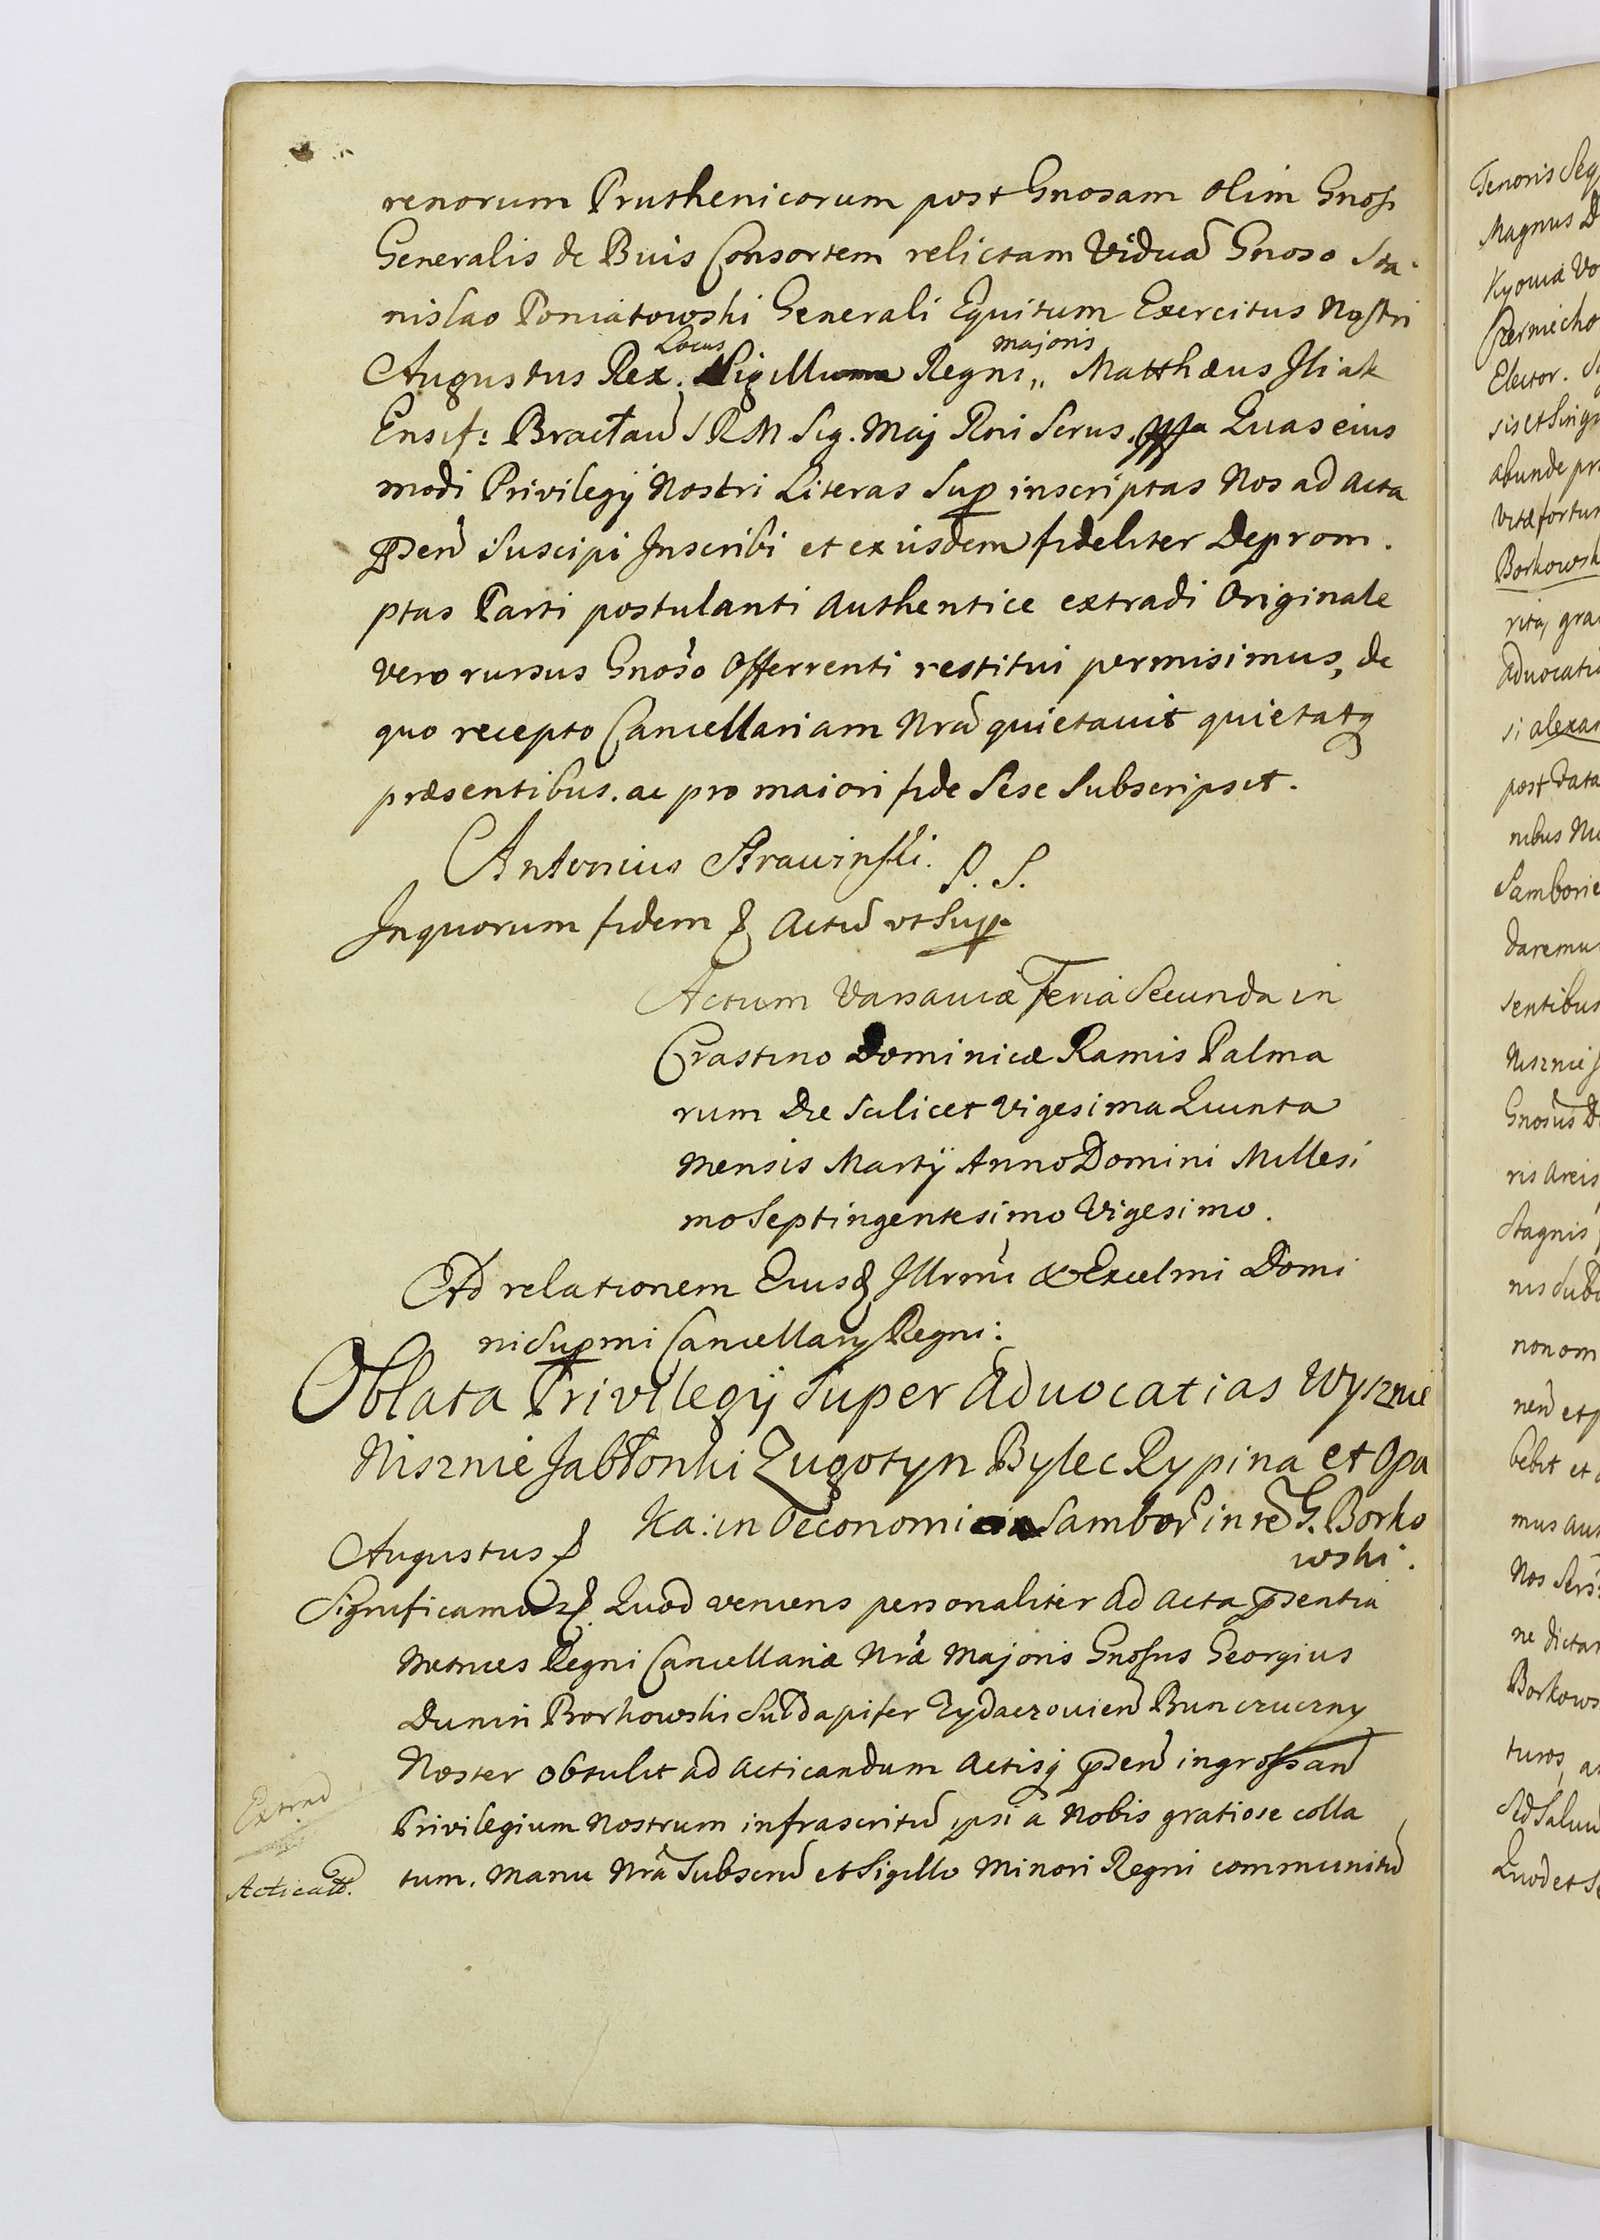 renorum Pruthenicorum post Gnosam olim Gnosi
Generalis de Buis Consortem relictam Viduã Gnoso Sta
nislao Poniatowski Generali Equitum Exercitus Nostri
Locus majoris
Augustus Rex. Sigillum Regni,, Matthæus Iliak
Ensif: Bractaṽ SRM Sig. Maj Rni Secrus. Quas eius
modi Privilegij Nostri Literas Sup inscriptas Nos ad Acta
pseñ Suscipi Inscribi et ex iisdem fideliter Deprom.
ptas Parti postulanti Authentice extradi Originale
vero rursus Gnoso Offerrenti restitui permisimus, de
quo recepto Cancellariam Nrã quietavit quietatq
præsentibus. ac pro maiori fide Sese Subscripsit.
Antonius Strawinski. P. S.
Inquorum fidem & Actũ ut Sup.
Actum Varsaviæ Feria Secunda in
Crastino Dominicæ Ramis Palma
rum Die Scilicet Vigesima Quinta
Mensis Martij Anno Domini Millesi
mo Septingentesimo Vigesimo.
Ad relationem Eiusd Illrmi & Excelmi Domi
ni Supmi Cancellary Regni:
Oblata Privilegij Super Advocatias Wysznie
Nisznie Jabłonki Zugotyn Bylec Rypina et Opa
Ka: in Oeconomia Sambor in rẽ G. Borko
wski.
Augustus &
Significamus & Quod veniens personaliter ad Acta psentia
Metrices Regni Cancellariæ Nræ Majoris Gnosus Georgius
Dunin Borkowski Subdapifer Zydaczovieñ Bunczuczny
Noster obtulit ad Acticandum Actisq pseñ ingrossañ
Extrad
Privilegium Nostrum infrascritũ ipsi a Nobis gratiose colla
Acticatt.
tum. Manu Nrã Subscrũ et Sigillo Minori Regni communitũ
Tenoris Seq
Magnus D
Kyoviæ Vo
Czerniecho
Elector. S
sis et Singu
abunde pr
Vitæ fortun
Borkowsk
rita, gra
Advocati
si alexan
post data
nibus Nu
Samborie
daremu
sentibus
Nisznie J
Gnosus D
ris Arcis
Stagnis
nis Subd
non om
neñ et p
bebit et
mus au
Nos Sers
ne dictar
Borkows
turos, a
Sed Salvu
Quod et S